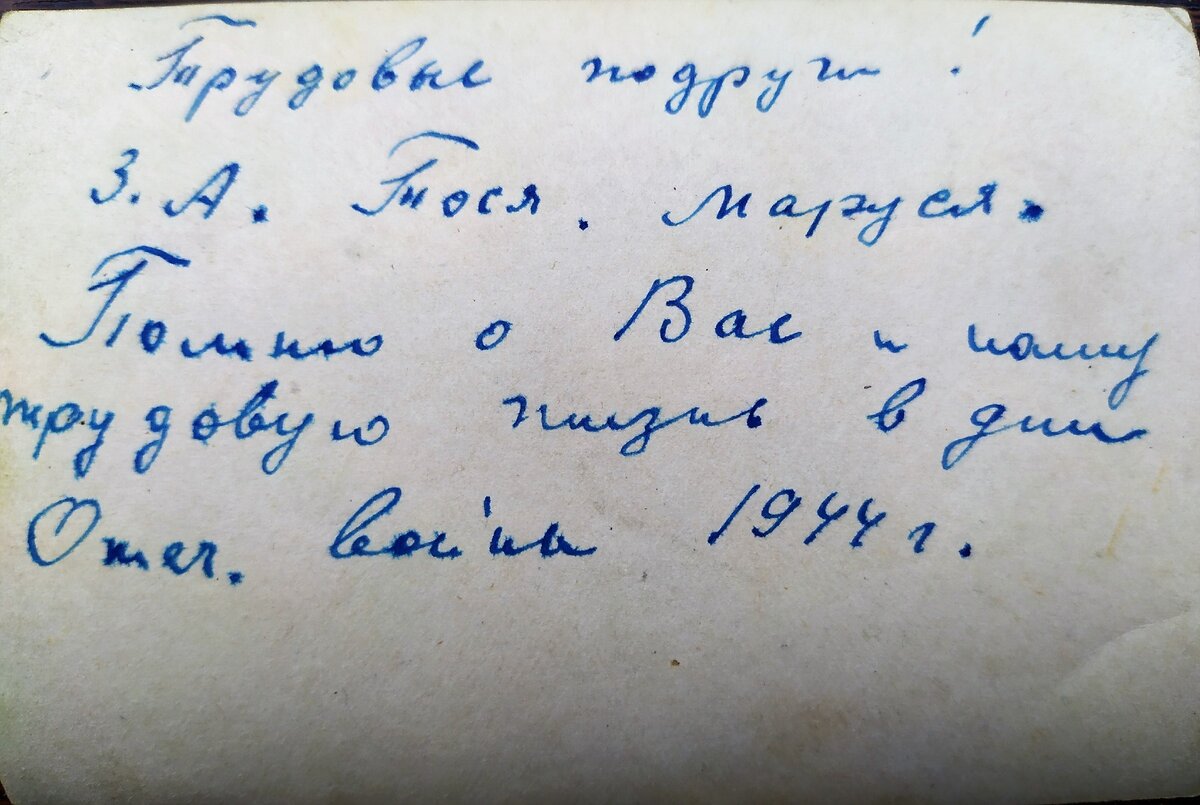 Трудовые подруги!
З. А. Тося. Маруся.
Помню о Вас и нашу
трудовую жизнь в дни
Отеч. войны 1944 г.